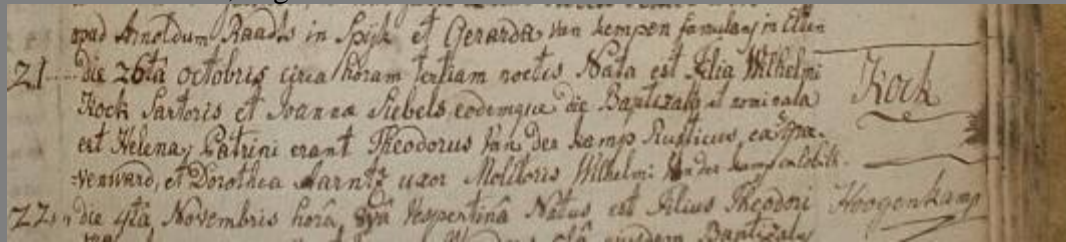 apud Arnoldum Raads in Spijk et Gerarda van kempen famulans in Elten
21 die 26ta octobris circa horam tertiam noctis Nata est filia Wilhelmi Kock
Kock Sartoris et Joanna Siebels eodemque die Baptizata et nominata
est Helena, Patrini erant Theodorus Van der kamp Rusticus ex
et Dorothea Aarntz uxor Molitoris Wilhelmi Van der kamp
22 die 4ta Novembris hora 8va Vespertina Natus est filius Theodori Hoogenkamp
Baptizatus